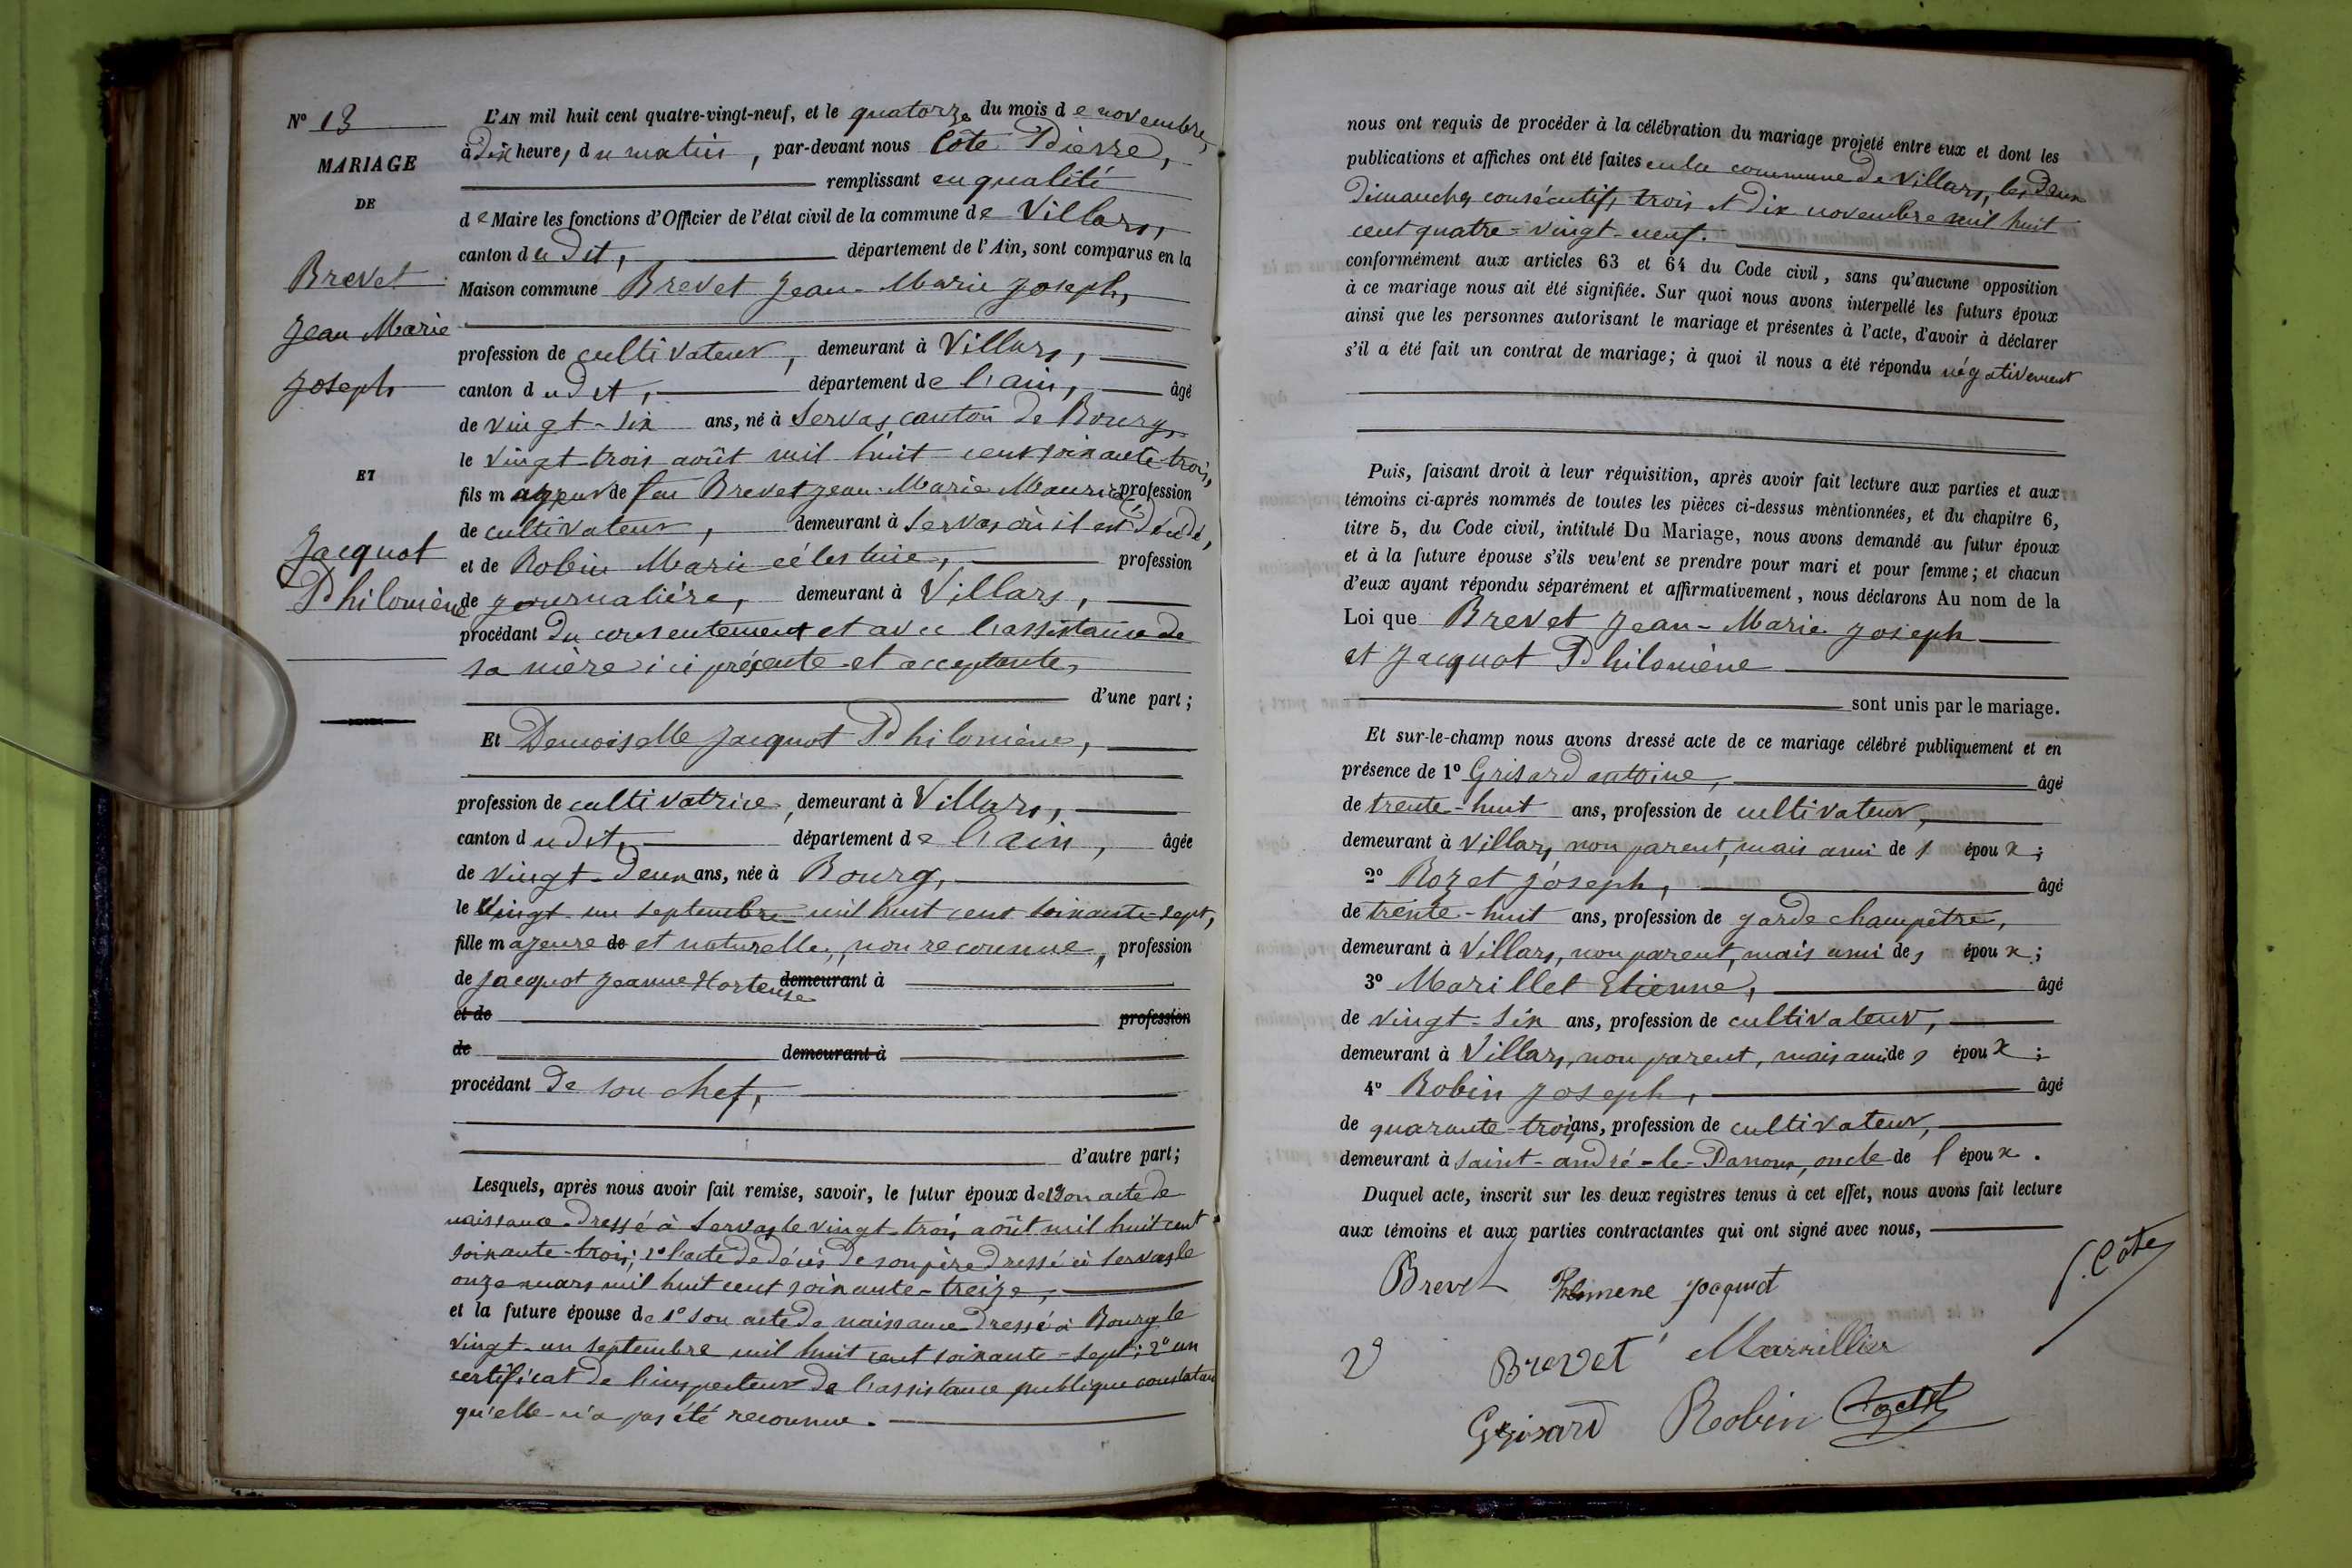 N° 13
MARIAGE
DE
Brevet
Jean Marie
Joseph
ET
Jacquot
Philomène
L'AN mil huit cent quatre-vingt-neuf, et le quatorze du mois de novembre,
à dix heures du matin, par-devant nous Côte Pierre,
remplissant en qualité
de Maire les fonctions d'Officier de l'état civil de la commune de Villars,
canton dudit, département de l'Ain, sont comparus en la
Maison commune Brevet Jean-Marie Joseph,
profession de cultivateur, demeurant à Villars,
canton dudit, département de l'ain, âgé
de vingt-six ans, né à Servas canton de Bourg,
le vingt-trois août mil huit cent soixante-trois,
fils majeur de feu Brevet Jean-Marie Maurice, profession
de cultivateur, demeurant à Servas où il est décédé,
et de Robin Marie célestine, profession
de journalière, demeurant à Villars,
procédant du consentement et avec l'assistance de
sa mère ici présente et acceptante,
d'une part;
Et Demoiselle Jacquot Philomène,
profession de cultivatrice, demeurant à Villars,
canton dudit, département de l'ain, âgée
de vingt-deux ans, née à Bourg,
le vingt-un septembre mil huit cent soixante-sept,
fille majeure de et naturelle, non reconnue, profession
de Jacquot Jeanne Hortense demeurant à
et de profession
de demeurant à
procédant de son chef,
d'autre part;
Lesquels, après nous avoir fait remise, savoir, le futur époux de 1° son acte de
naissance dressé à Servas le vingt-trois août mil huit cent
soixante-trois; 2° l'acte de décès de son père dressé à Servas le
onze mars mil huit cent soixante-treize,
et la future épouse de 1° son acte de naissance dressé à Bourg le
vingt-un septembre mil huit cent soixante-sept; 2° un
certificat de l'inspecteur de l'assistance publique constatant
qu'elle n'a pas été reconnue.
nous ont requis de procéder à la célébration du mariage projeté entre eux et dont les
publications et affiches ont été faites en la commune de Villars, les deux
dimanches consécutifs trois et dix novembre mil huit
cent quatre-vingt-neuf.
conformément aux articles 63 et 64 du Code civil, sans qu'aucune opposition
à ce mariage nous ait été signifiée. Sur quoi nous avons interpellé les futurs époux
ainsi que les personnes autorisant le mariage et présentes à l'acte, d'avoir à déclarer
s'il a été fait un contrat de mariage; à quoi il nous a été répondu négativement
Puis, faisant droit à leur réquisition, après avoir fait lecture aux parties et aux
témoins ci-après nommés de toutes les pièces ci-dessus mentionnées, et du chapitre 6,
titre 5, du Code civil, intitulé Du Mariage, nous avons demandé au futur époux
et à la future épouse s'ils veulent se prendre pour mari et pour femme; et chacun
d'eux ayant répondu séparément et affirmativement, nous déclarons Au nom de la
Loi que Brevet Jean-Marie Joseph
et Jacquot Philomène
sont unis par le mariage.
Et sur-le-champ nous avons dressé acte de ce mariage célébré publiquement et en
présence de 1° Grisard antoine, âgé
de trente-huit ans, profession de cultivateur,
demeurant à Villars, non parent, mais ami des époux;
2° Rozet Joseph, âgé
de trente-huit ans, profession de garde champêtre,
demeurant à Villars, non parent, mais ami des époux;
3° Marillet Etienne, âgé
de vingt-six ans, profession de cultivateur,
demeurant à Villars, non parent, mais ami des époux;
4° Robin Joseph, âgé
de quarante-trois ans, profession de cultivateur,
demeurant à Saint-andré-le-Panoux, oncle de l'époux.
Duquel acte, inscrit sur les deux registres tenus à cet effet, nous avons fait lecture
aux témoins et aux parties contractantes qui ont signé avec nous,
Brevet Jacquot Côte
Brevet Marillier
Grisard Robin